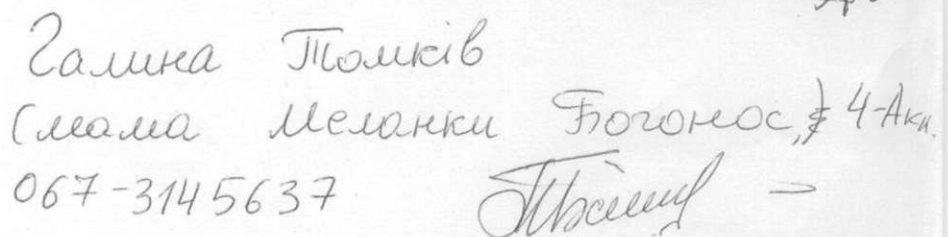 Галина Томків
(мама Меланки Богонос, 4-Акн.
067-3145637